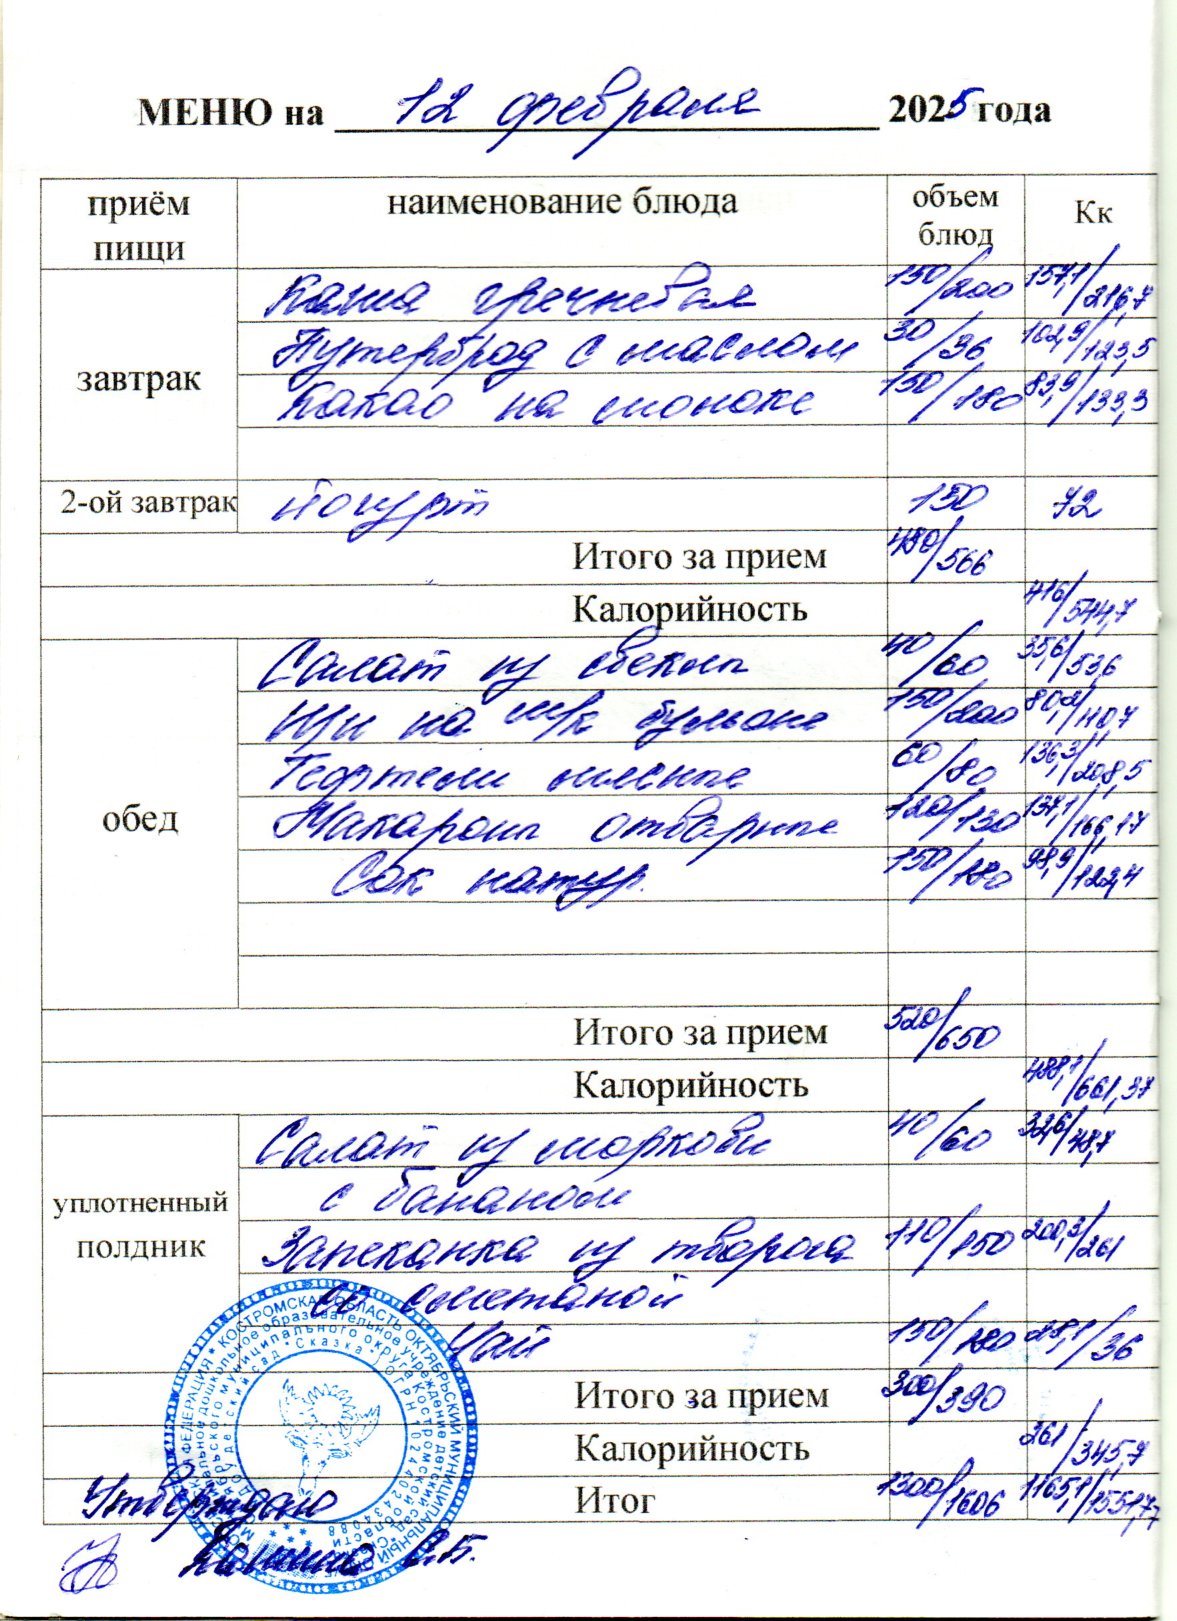 МЕНЮ на 12 февраля 2025 года
приём пищи наименование блюда объем блюд Кк
завтрак
Каша гречневая 150/200 157,1/216,7
Бутерброд с маслом 30/36 102,9/123,5
Какао на молоке 150/180 83,9/133,3
2-ой завтрак Йогурт 150 72
Итого за прием 480/566
Калорийность 416/544,7
обед
Салат из свеклы 40/60 35,6/53,6
Щи на м/к бульоне 150/200 80,2/110,7
Тефтели мясные 60/80 136,3/208,5
Макароны отварные 120/130 137,1/166,17
Сок натур. 150/180 98,9/122,4
Итого за прием 520/650
Калорийность 488,1/661,37
уплотненный полдник
Салат из моркови 40/60 32,6/48,7
с бананом
Запеканка из творога 110/150 200,3/261
со сметаной
Чай 150/180 28,1/36
Итого за прием 300/390
Калорийность 261/345,7
Итог 1300/1606 1165,1/1551,77
Утверждаю